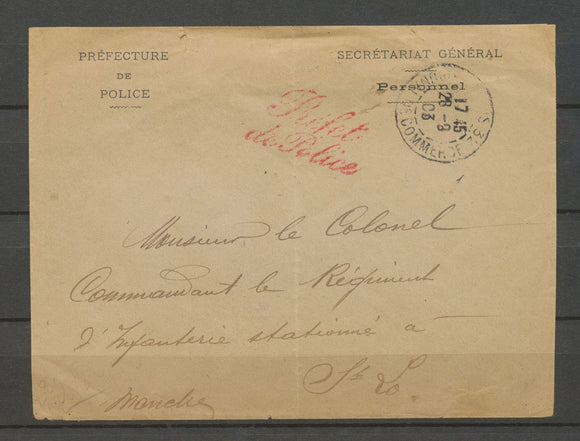 PRÉFECTURE
DE
POLICE
SECRÉTARIAT GÉNÉRAL
Personnel
Préfet
de Police
17 45
28 - 9
03
COMMERCE
Monsieur le Colonel
Commandant le Régiment
d'Infanterie stationné à
St Lo
Manche